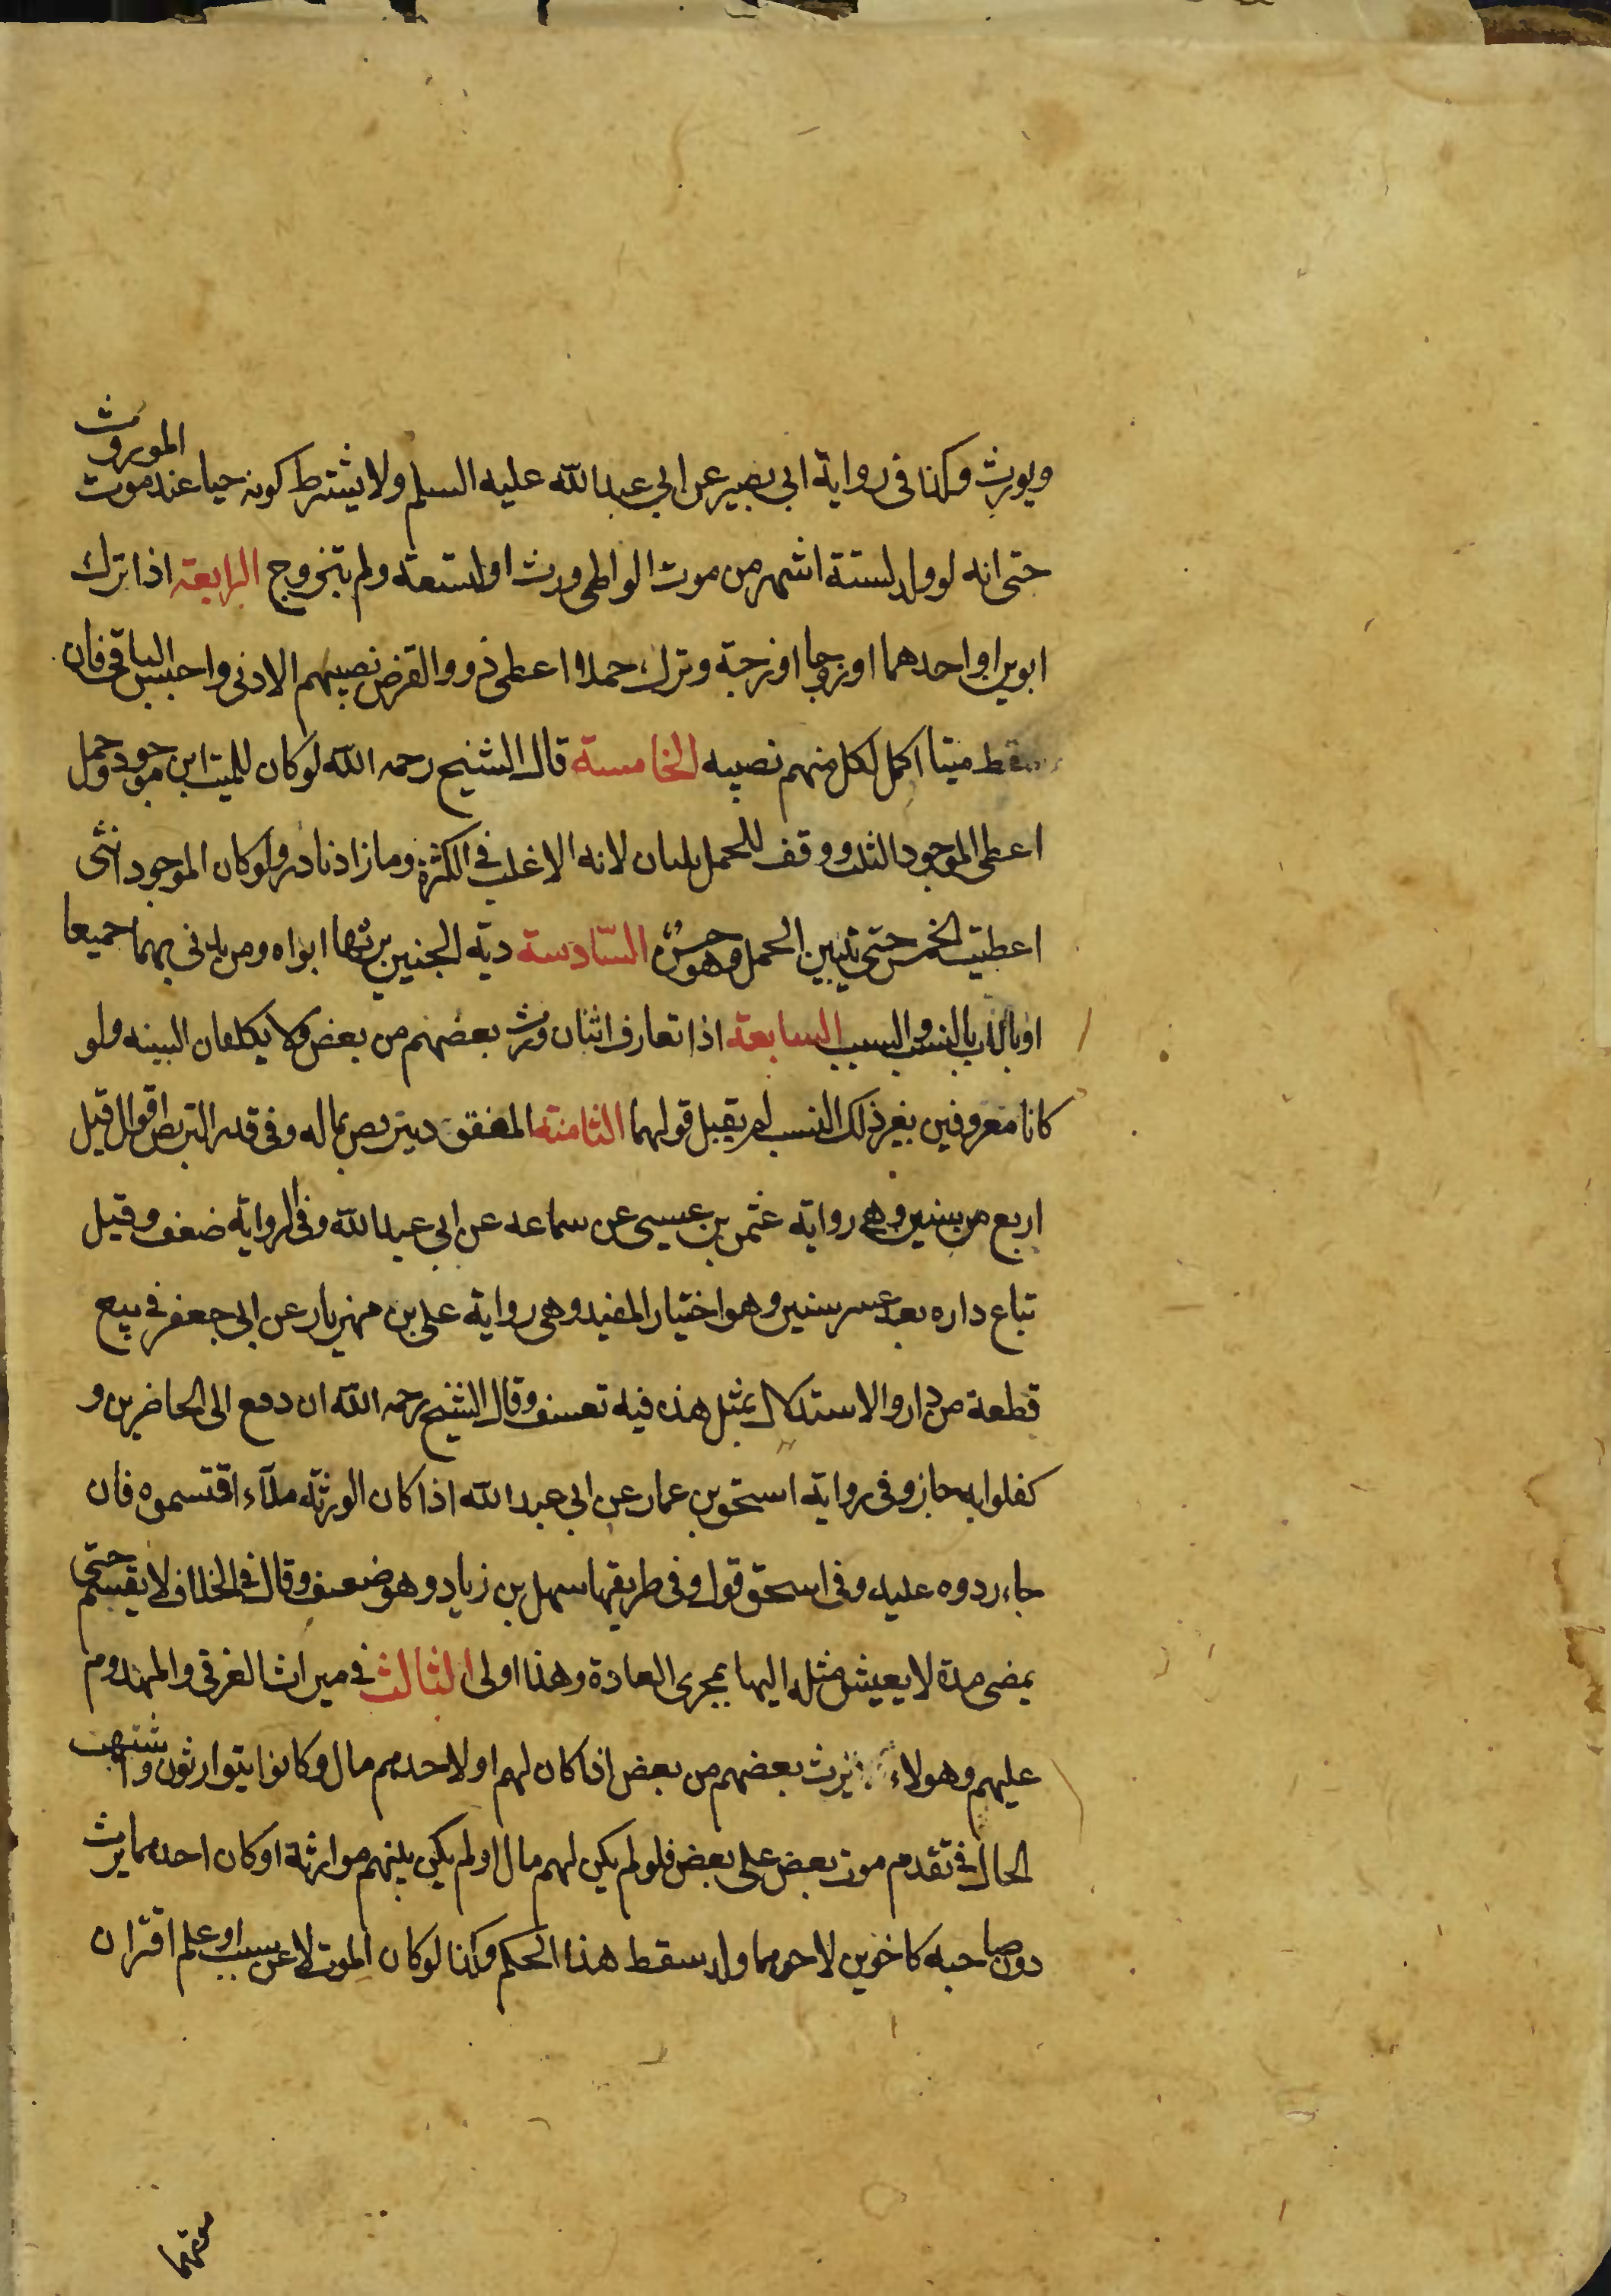 ويورث وكذا في رواية ابي بصير عن ابي عبدالله عليه السلم ولا يشترط كونه حيا عند موت الموروث
حتى انه لو ولد لستة اشهر من موت الواطي ورث او لستعة ولم يتزوج الرابعة اذا ترك
ابوين او احدهما او زوجا او زوجة وترك حملا اعطى ذوو الفرض نصيبهم الادنى واحتبس الباقي فان
سقط ميتا اكمل لكل منهم نصيبه الخامسة قال الشيخ رحمه الله لو كان للميت ابن موجود وحمل
اعطى الموجود الثلث ووقف للحمل ثلثان لانه الاغلب في الكثرة وما زاد نادر ولو كان الموجود انثى
اعطيت الخمس حتى يتبين الحمل وهو حسن السادسة دية الجنين يرثها ابواه ومن يدلي بهما جميعا
او بالاب بالنسب والسبب السابعة اذا تعارف اثنان ورث بعضهم من بعض ولا يكلفان البينه ولو
كانا معروفين بغير ذلك النسب لم يقبل قولهما الثامنة المفقود يتربص بماله وفي قدر التربص اقوال قيل
اربع من سنين وهي رواية عثمن بن عيسى عن سماعه عن ابي عبدالله وفي الرواية ضعف وقيل
تباع داره بعد عشر سنين وهو اختيار المفيد وهي رواية على بن مهزيار عن ابي جعفر في بيع
قطعة من دار والاستدلال بمثل هذه فيه تعسف وقال الشيخ رحمه الله ان دفع الى الحاضرين و
كفلوا به جاز وفي رواية اسحق بن عمار عن ابي عبدالله اذا كان الورثة ملآء اقتسموه فان
جاء ردوه عليه وفي اسحق قول وفي طريقها سهل بن زياد وهو ضعيف وقال في الخلاف لا يقسم حتى
يمضى مدة لا يعيش مثله اليها بمجرى العادة وهذا اولى الثالث في ميراث الغرقى والمهدوم
عليهم وهولاء يرث بعضهم من بعض اذا كان لهم او لاحدهم مال وكانوا يتوارثون واشتبهت
الحال في تقدم موت بعض على بعض فلو لم يكن لهم مال او لم يكن بينهم موارثة او كان احدهما يرث
دون صاحبه كاخوين لاحدهما ولد سقط هذا الحكم وكذا لو كان الموت لا عن سبب او علم اقتران
موتهما